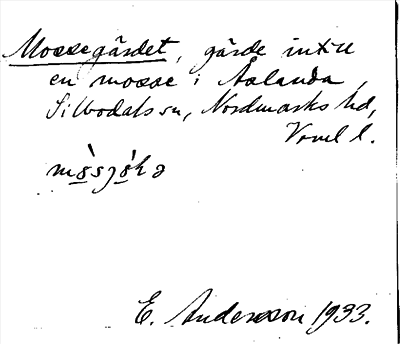 Mossegärdet, gärde intill
en mosse i Åslanda,
Silbodals sn, Nordmarks hd,
Vrml l.
E. Andersson 1933.